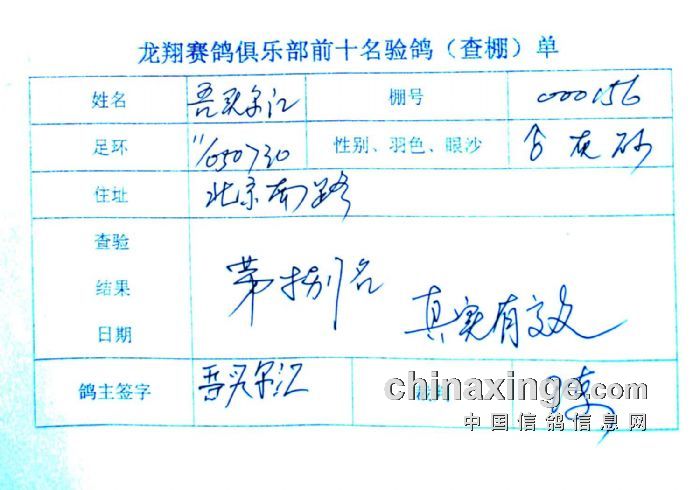 龙翔赛鸽俱乐部前十名验鸽（查棚）单
姓名 吾买尔江 棚号 000156
足环 11/050730 性别、羽色、眼沙 合 灰 砂
住址 北京南路
查验
结果 第捌名 真实有效
日期
鸽主签字 吾买尔江
chinaxinge.com
中国信鸽信息网